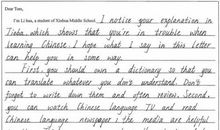 Dear Tom,
I'm Li hua, a student of Xinhua Middle School. I notice your explanation in
Tieba which shows that you're in trouble when
learning Chinese. I hope what I say in this letter
can help you in some way.
First, you should own a dictionary so that you
can translate whatever you don't understand. Don't
forget to write them down and often review. Second,
you can watch Chinese language TV and read
Chinese language newspaper, the media are helpful